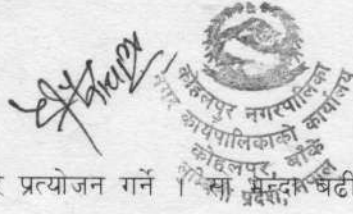 कोहलपुर नगरपालिका
नगर कार्यपालिकाको कार्यालय
कोहलपुर, बाँके
प्रदेश, नेपाल
र प्रत्योजन गर्ने । सो भन्दा बढी